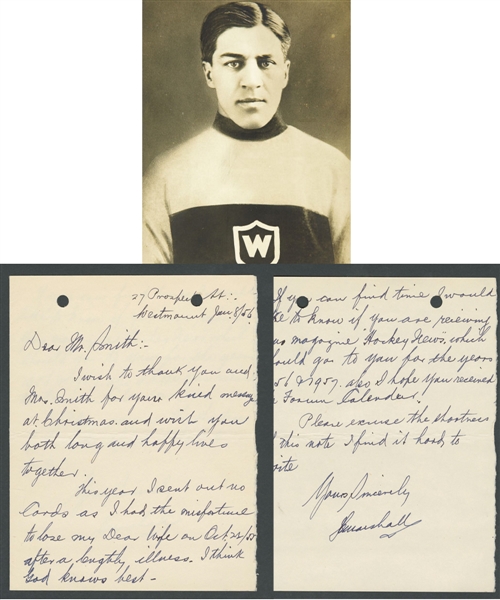 W
27 Prospect St:-
Westmount Jan 8/56.
Dear Mr. Smith:-
I wish to thank you and
Mrs. Smith for your kind message
at Christmas. and wish you
both long and happy lives
together.
This year I sent out no
Cards as I had the misfortune
to lose my Dear Wife on Oct. 22/55
after a lengthy illness. I think
God knows best-
If you can find time I would
ke to know if you are receiving
magazine Hockey News. which
ould go to you for the years
56 & 1957. also I hope you received
Forum Calender!
Please excuse the shortness
this note I find it hard to
ite
Yours Sincerely
J Marshall